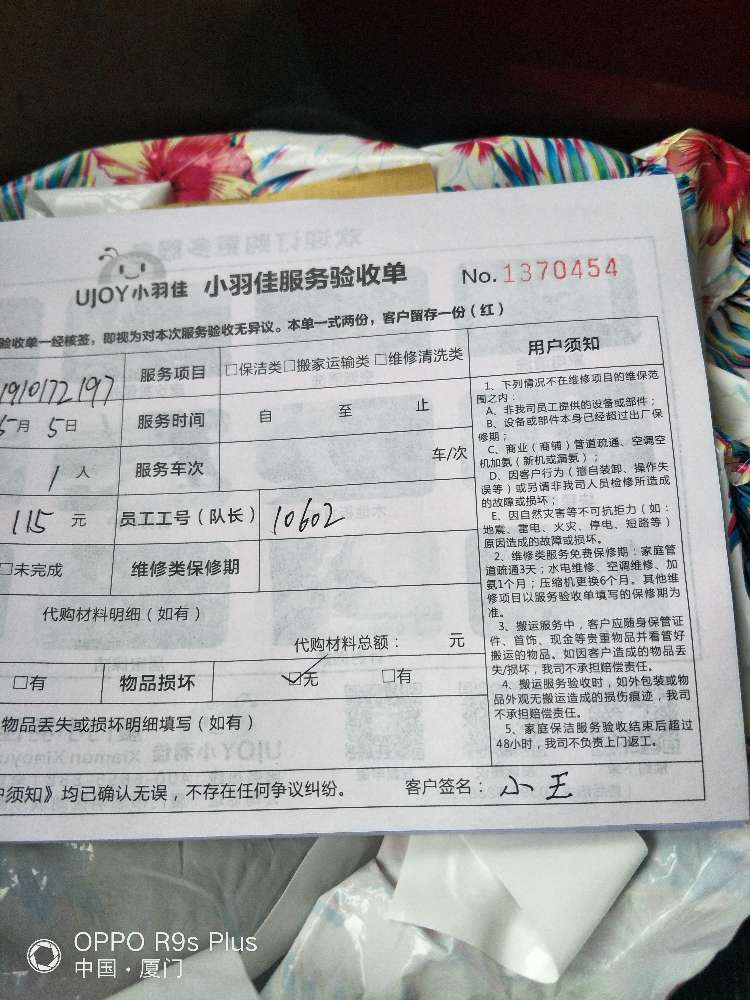 UJOY小羽佳 小羽佳服务验收单 No. 1370454
验收单一经核签，即视为对本次服务验收无异议。本单一式两份，客户留存一份（红）
1910172197 服务项目 □保洁类□搬家运输类 □维修清洗类
5月5日 服务时间 自 至 止
1人 服务车次 车/次
115元 员工工号（队长） 10602
□未完成 维修类保修期
代购材料明细（如有）
代购材料总额： 元
□有 物品损坏 ☑无 □有
物品丢失或损坏明细填写（如有）
户须知》均已确认无误，不存在任何争议纠纷。 客户签名：小王
用户须知
1、下列情况不在维修项目的维保范
围之内：
A、非我司员工提供的设备或部件；
B、设备或部件本身已经超过出厂保
修期；
C、商业（商铺）管道疏通、空调空
机加氨（新机或漏氨）；
D、因客户行为（擅自装卸、操作失
误等）或另请非我司人员检修所造成
的故障或损坏；
E、因自然灾害等不可抗拒力（如：
地震、雷电、火灾、停电、短路等）
原因造成的故障或损坏。
2、维修类服务免费保修期：家庭管
道疏通3天；水电维修、空调维修、加
氨1个月；压缩机更换6个月。其他维
修项目以服务验收单填写的保修期为
准。
3、搬运服务中，客户应随身保管证
件、首饰、现金等贵重物品并看管好
搬运的物品。如因客户造成的物品丢
失/损坏，我司不承担赔偿责任。
4、搬运服务验收时，如外包装或物
品外观无搬运造成的损伤痕迹，我司
不承担赔偿责任。
5、家庭保洁服务验收结束后超过
48小时，我司不负责上门返工。
OPPO R9s Plus
中国·厦门